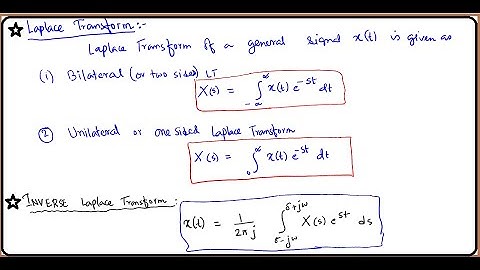 Laplace Transform:-
Laplace Transform of a general signal x(t) is given as
(1) Bilateral (or two sides) LT
X(s) = ∫_{-∞}^{∞} x(t) e^{-st} dt
(2) Unilateral or one sided Laplace Transform
X(s) = ∫_{0}^{∞} x(t) e^{-st} dt
INVERSE Laplace Transform:
x(t) = \frac{1}{2πj} ∫_{σ-jω}^{σ+jω} X(s) e^{st} ds